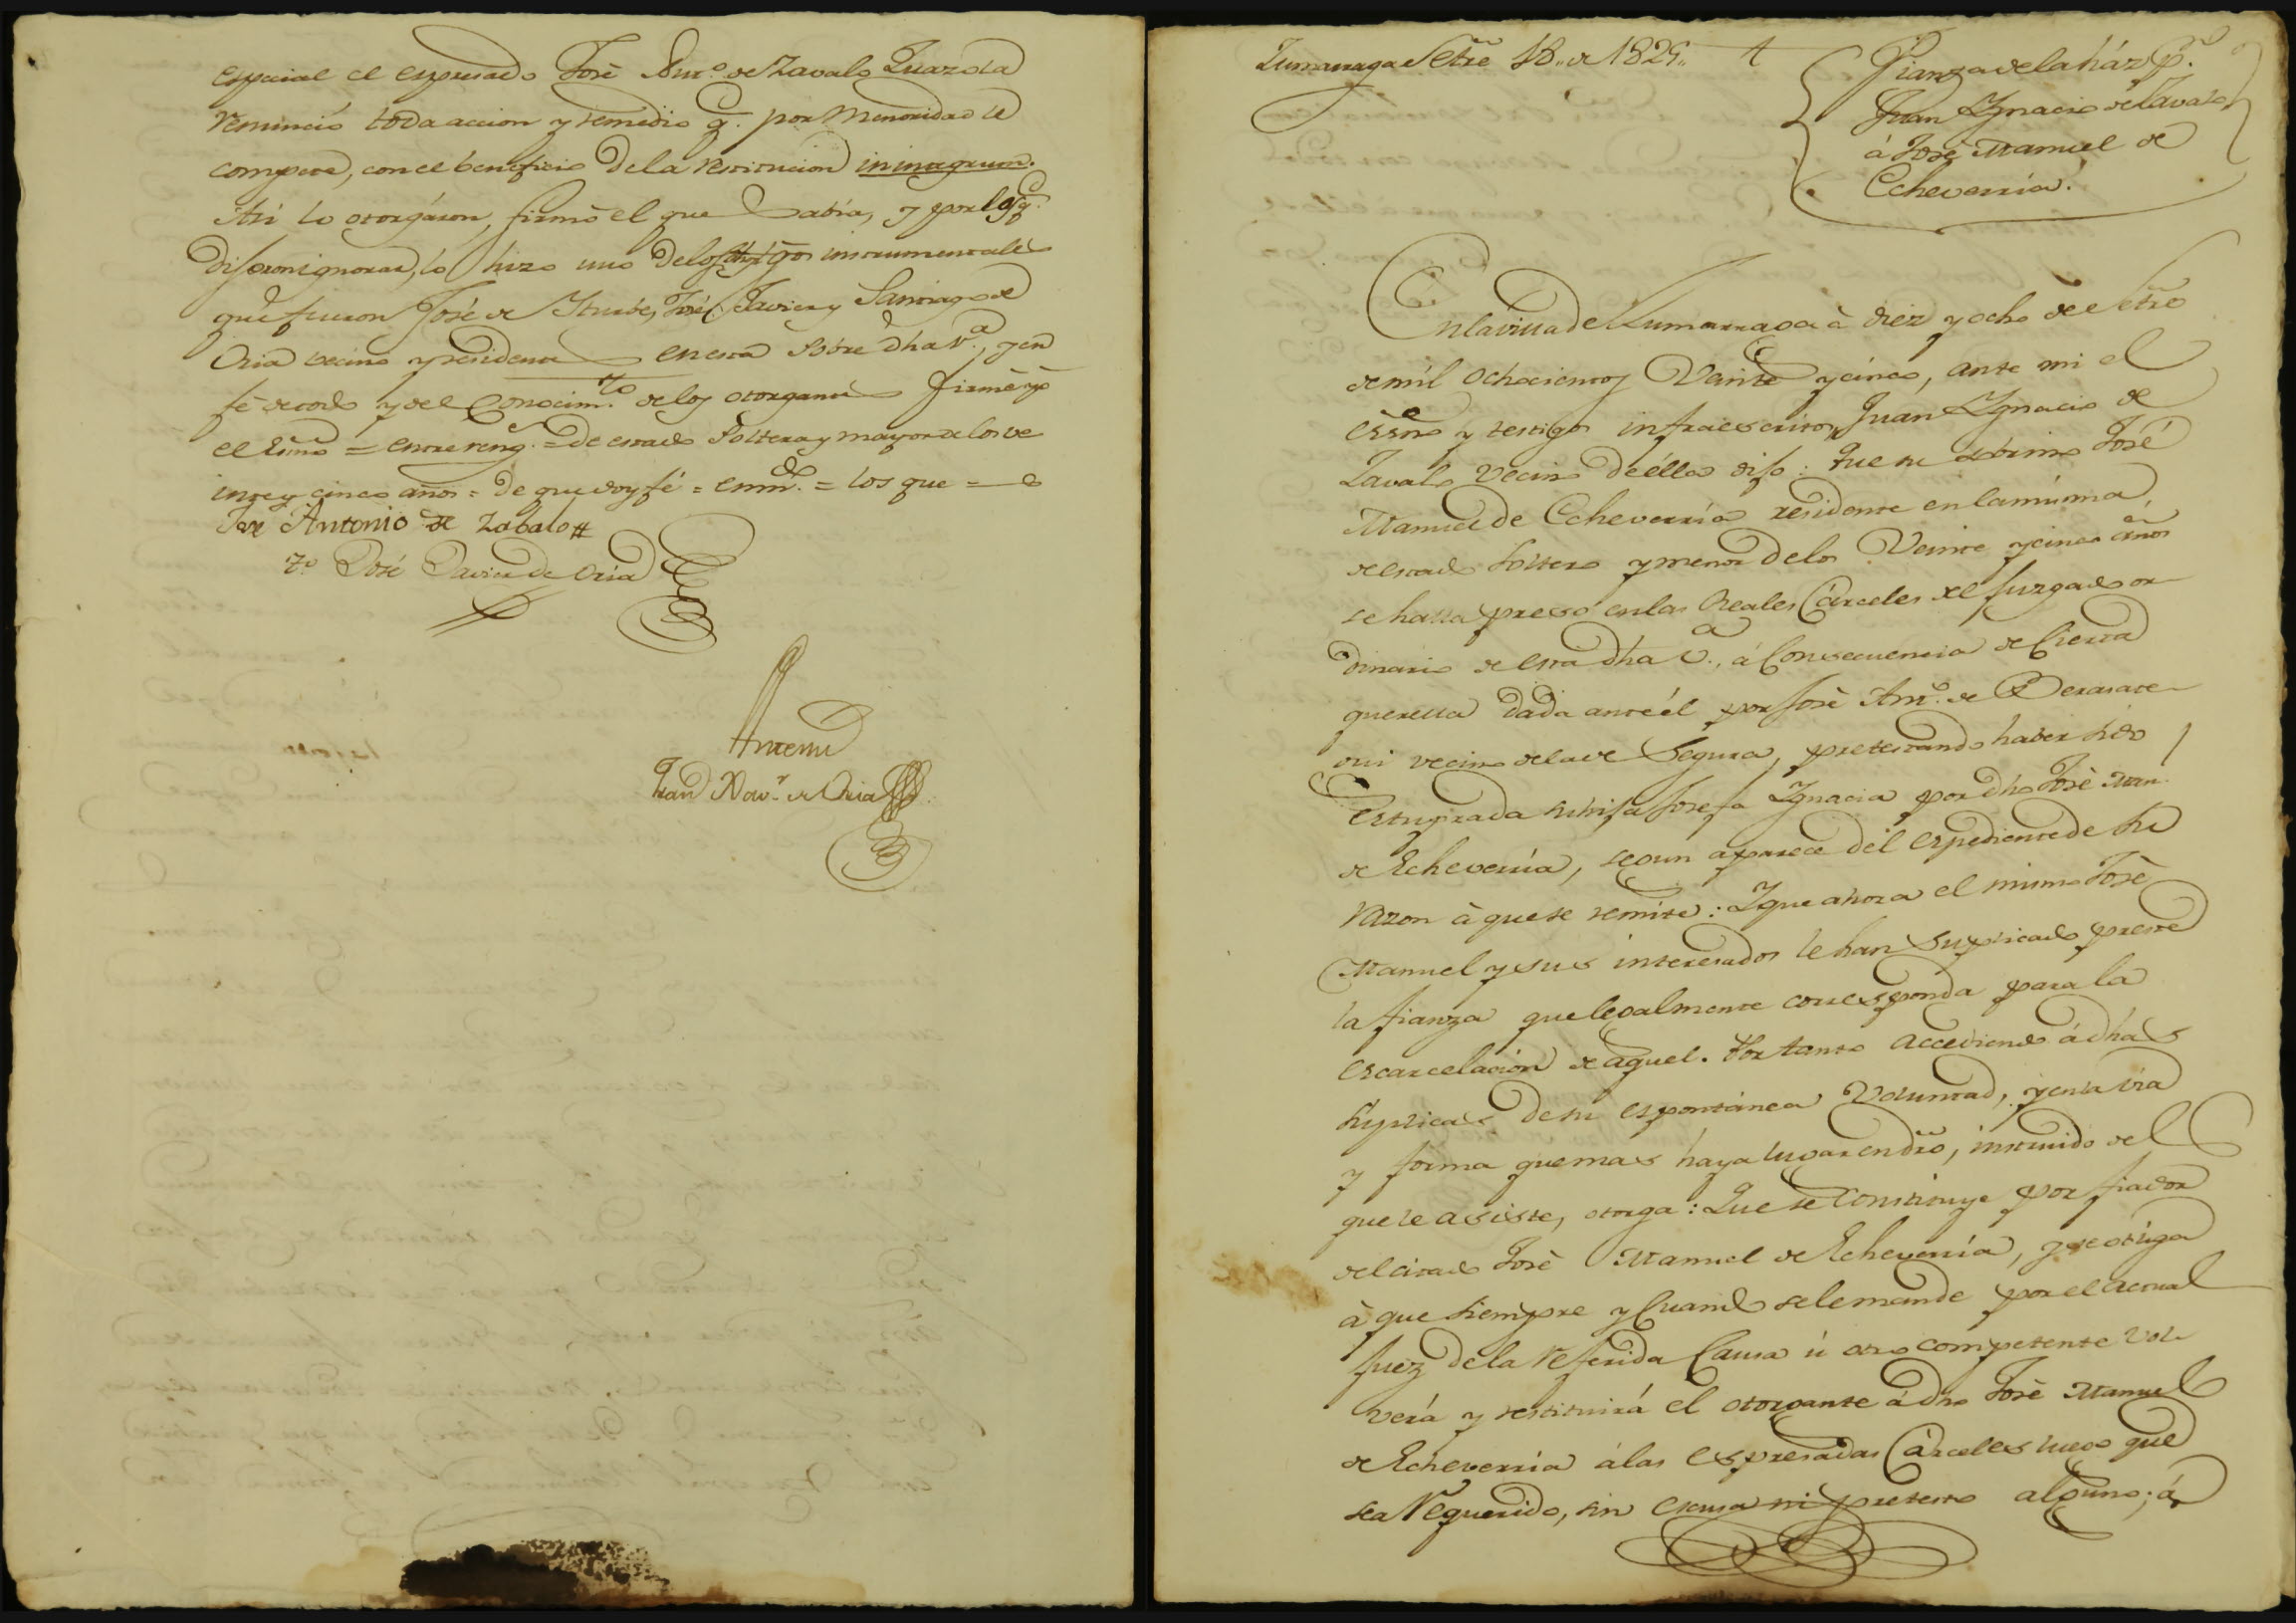 especial el espresado José Anto. de Zavalo Guazola
renunció toda accion y remedio q. por menoridad le
compete, con el beneficio de la restitucion inintegrum.
Asi lo otorgáron, firmó el que sabía, y por los q.
dijeron ignorar, lo hizo uno de los testigos instrumentales
que fueron José de Yturbe, José Javier y Santiago de
Oria vecino y residentes en esta sobre dha v.a, y en
fé de todo y del conocim.to de los otorgantes firmé yo
el Esno = entre reng.s = de estado soltera y mayor de los ve
inte y cinco años = de que doy fé = enm.do = los que =
José Antonio de Zabalo
to José Javier de Oria
Antemi
Juan Nav.r de Oria
Zumarraga Setre 18,, de 1825,,
Fianza de la ház p.r
Juan Ygnacio de Zavalo,
á José Manuel de
Echeverría.
En la villa de Zumarraga à diez y ocho de Setre
de mil ochocientos veinte y cinco, ante mi el
essno y testigos infraescritos, Juan Ygnacio de
Zavalo vecino de élla dijo: Que su sobrino José
Manuel de Echeverría residente en la misma,
de estado soltero y menor de los veinte y cinco años
se halla preso en las Reales Cárceles del Juzgado or-
dinario de esta dha v.a, á consecuencia de cierta
querella dada ante él por José Ant.o de
vecino de la de Segura, pretestando haber sido
estuprada su hija Josefa Ygnacia por dho José Man.l
de Echeverría, segun aparece dél espediente de su
razon à que se remite: Y que ahora el mismo José
Manuel y sus interesados le han suplicado preste
la fianza que legalmente corresponda para la
escarcelacion de aquel. Por tanto accediendo á dhas
súplicas de su espontánea voluntad, y en la via
y forma que mas haya lugar en dro, instruido del
que le asiste, otorga: Que se constituye por fiador
del citado José Manuel de Echeverría, y se obliga
à que siempre y cuando se le mande por el actual
Juez de la referida causa ú otro competente vol-
verá y restituirá el otorgante á dho José Manuel
de Echeverría á las espresadas Cárceles luego que
sea requerido, sin escusa ni pretesto alguno; á